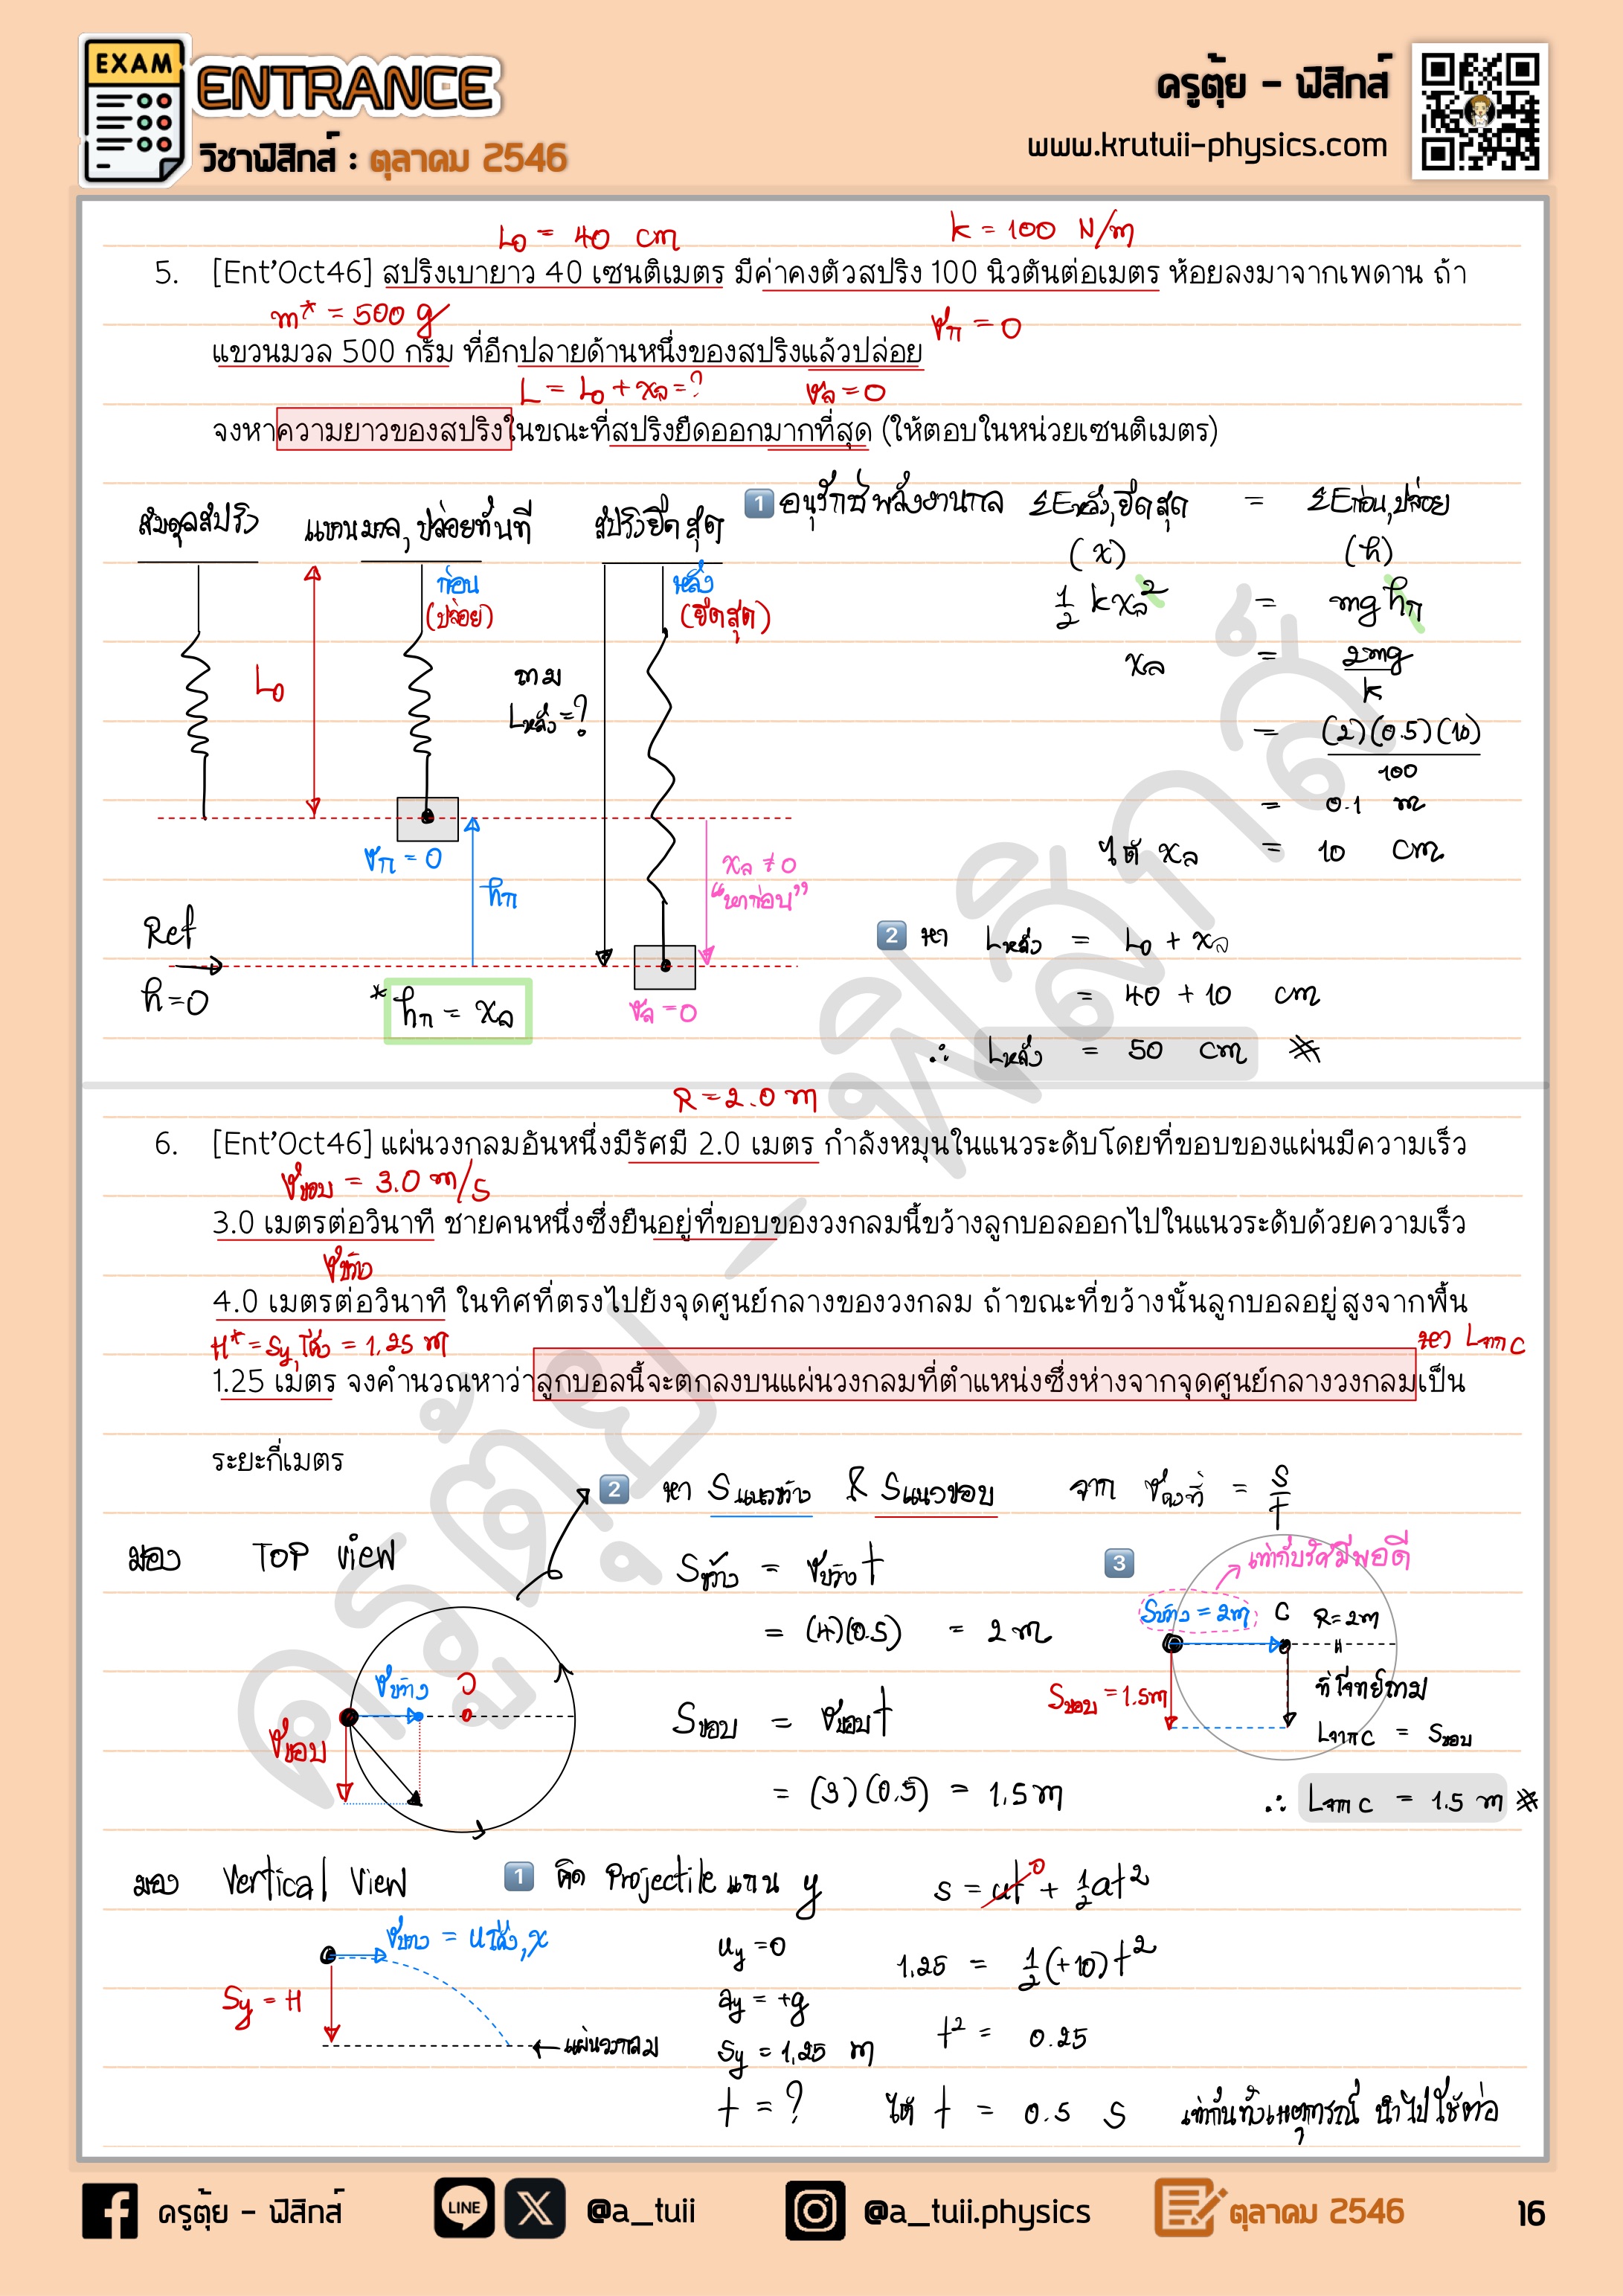 EXAM
ENTRANCE
วิชาฟิสิกส์ : ตุลาคม 2546
ครูตุ้ย - ฟิสิกส์
www.krutuii-physics.com
L₀ = 40 cm
k = 100 N/m
5. [Ent'Oct46] สปริงเบายาว 40 เซนติเมตร มีค่าคงตัวสปริง 100 นิวตันต่อเมตร ห้อยลงมาจากเพดาน ถ้า
m* = 500 g
vก = 0
แขวนมวล 500 กรัม ที่อีกปลายด้านหนึ่งของสปริงแล้วปล่อย
L = L₀ + xล = ?
vล = 0
จงหาความยาวของสปริงในขณะที่สปริงยืดออกมากที่สุด (ให้ตอบในหน่วยเซนติเมตร)
สมดุลสปริง
แขวนมวล, ปล่อยทันที
สปริงยืดสุด
ก่อน
(ปล่อย)
หลัง
(ยืดสุด)
L₀
ถาม
Lหลัง = ?
vก = 0
hก
xล ≠ 0
"หาก่อน"
Ref
h = 0
* hก = xล
vล = 0
1 อนุรักษ์พลังงานกล ΣEหลัง,ยืดสุด = ΣEก่อน,ปล่อย
(x) (h)
½ kxล² = mghก
xล = 2mg/k
= (2)(0.5)(10)/100
= 0.1 m
ได้ xล = 10 cm
2 หา Lหลัง = L₀ + xล
= 40 + 10 cm
∴ Lหลัง = 50 cm
R = 2.0 m
6. [Ent'Oct46] แผ่นวงกลมอันหนึ่งมีรัศมี 2.0 เมตร กำลังหมุนในแนวระดับโดยที่ขอบของแผ่นมีความเร็ว
vขอบ = 3.0 m/s
3.0 เมตรต่อวินาที ชายคนหนึ่งซึ่งยืนอยู่ที่ขอบของวงกลมนี้ขว้างลูกบอลออกไปในแนวระดับด้วยความเร็ว
vขว้าง
4.0 เมตรต่อวินาที ในทิศที่ตรงไปยังจุดศูนย์กลางของวงกลม ถ้าขณะที่ขว้างนั้นลูกบอลอยู่สูงจากพื้น
H* = Sy,โค้ง = 1.25 m
หา Lจาก C
1.25 เมตร จงคำนวณหาว่าลูกบอลนี้จะตกลงบนแผ่นวงกลมที่ตำแหน่งซึ่งห่างจากจุดศูนย์กลางวงกลมเป็น
ระยะกี่เมตร
2 หา Sแนวขว้าง & Sแนวขอบ จาก vคงที่ = S/t
มอง TOP View
vขว้าง
vขอบ
Sขว้าง = vขว้าง t
= (4)(0.5) = 2 m
Sขอบ = vขอบ t
= (3)(0.5) = 1.5 m
3
เท่ากับรัศมีพอดี
Sขว้าง = 2m C R = 2m
Sขอบ = 1.5m
ที่โจทย์ถาม
Lจาก C = Sขอบ
∴ Lจาก C = 1.5 m
มอง Vertical View
1 คิด Projectile แกน y
vขว้าง = uโค้ง,x
Sy = H
แผ่นวงกลม
uy = 0
ay = +g
Sy = 1.25 m
t = ?
s = ut⁰ + ½at²
1.25 = ½(+10)t²
t² = 0.25
ได้ t = 0.5 s เท่ากันทั้งเหตุการณ์ นำไปใช้ต่อ
ครูตุ้ย - ฟิสิกส์
LINE
@a_tuii
@a_tuii.physics
ตุลาคม 2546
16